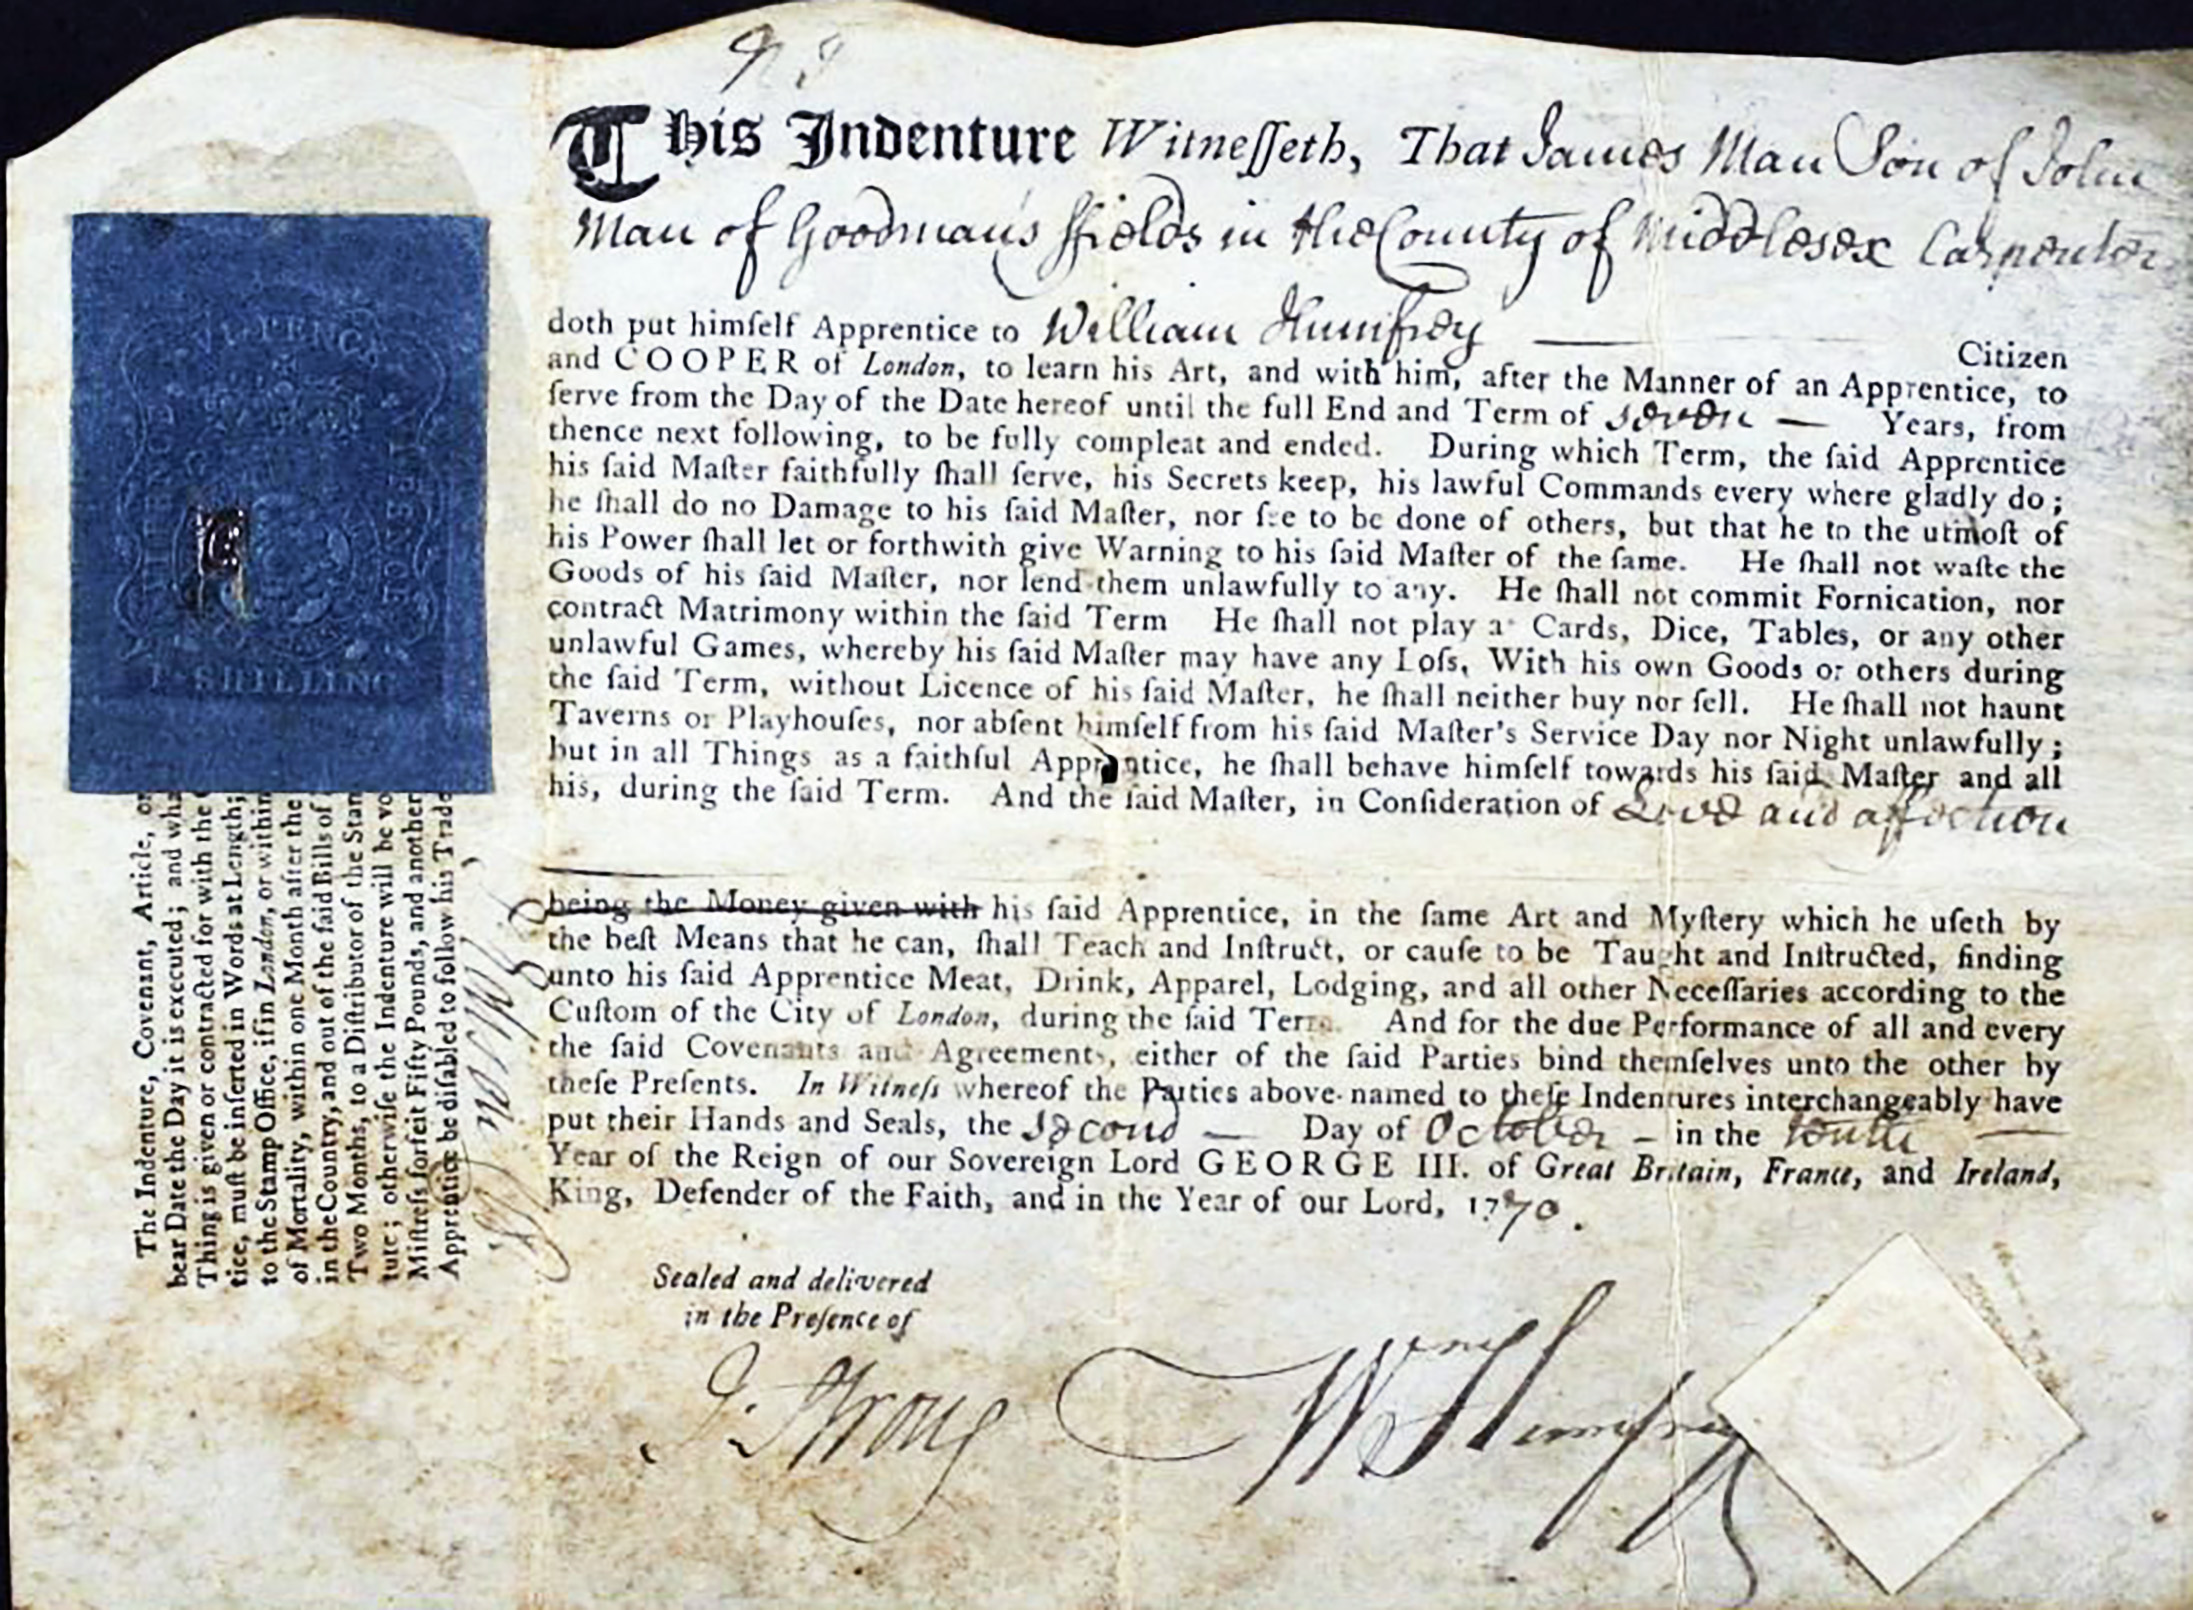 This Indenture Witneſſeth, That James Man Son of John
Man of Goodman's ffields in the County of Middlesex Carpenter
doth put himſelf Apprentice to William Humfrey Citizen
and COOPER of London, to learn his Art, and with him, after the Manner of an Apprentice, to
ſerve from the Day of the Date hereof until the full End and Term of seven — Years, from
thence next following, to be fully compleat and ended. During which Term, the ſaid Apprentice
his ſaid Maſter faithfully ſhall ſerve, his Secrets keep, his lawful Commands every where gladly do;
he ſhall do no Damage to his ſaid Maſter, nor ſee to be done of others, but that he to the utmoſt of
his Power ſhall let or forthwith give Warning to his ſaid Maſter of the ſame. He ſhall not waſte the
Goods of his ſaid Maſter, nor lend them unlawfully to any. He ſhall not commit Fornication, nor
contract Matrimony within the ſaid Term He ſhall not play at Cards, Dice, Tables, or any other
unlawful Games, whereby his ſaid Maſter may have any Loſs, With his own Goods or others during
the ſaid Term, without Licence of his ſaid Maſter, he ſhall neither buy nor ſell. He ſhall not haunt
Taverns or Playhouſes, nor abſent himſelf from his ſaid Maſter's Service Day nor Night unlawfully;
but in all Things as a faithful Apprentice, he ſhall behave himſelf towards his ſaid Maſter and all
his, during the ſaid Term. And the ſaid Maſter, in Conſideration of Love and affection
being the Money given with his ſaid Apprentice, in the ſame Art and Myſtery which he uſeth by
the beſt Means that he can, ſhall Teach and Inſtruct, or cauſe to be Taught and Inſtructed, finding
unto his ſaid Apprentice Meat, Drink, Apparel, Lodging, and all other Neceſſaries according to the
Cuſtom of the City of London, during the ſaid Term. And for the due Performance of all and every
the ſaid Covenants and Agreements, either of the ſaid Parties bind themſelves unto the other by
theſe Preſents. In Witneſs whereof the Parties above-named to theſe Indentures interchangeably have
put their Hands and Seals, the Second — Day of October – in the tenth —
Year of the Reign of our Sovereign Lord GEORGE III. of Great Britain, France, and Ireland,
King, Defender of the Faith, and in the Year of our Lord, 1770.
Sealed and delivered
in the Preſence of
J. Strong
Wm Humfrey
VI PENCE
I SHILLING
The Indenture, Covenant, Article, or
bear Date the Day it is executed; and wha
Thing is given or contracted for with the
tice, muſt be inſerted in Words at Length;
to the Stamp Office, if in London, or within
of Mortality, within one Month after the
in the Country, and out of the ſaid Bills of
Two Months, to a Diſtributor of the Stam
ture; otherwiſe the Indenture will be vo
Miſtreſs forfeit Fifty Pounds, and another
Apprentice be diſabled to follow his Trade